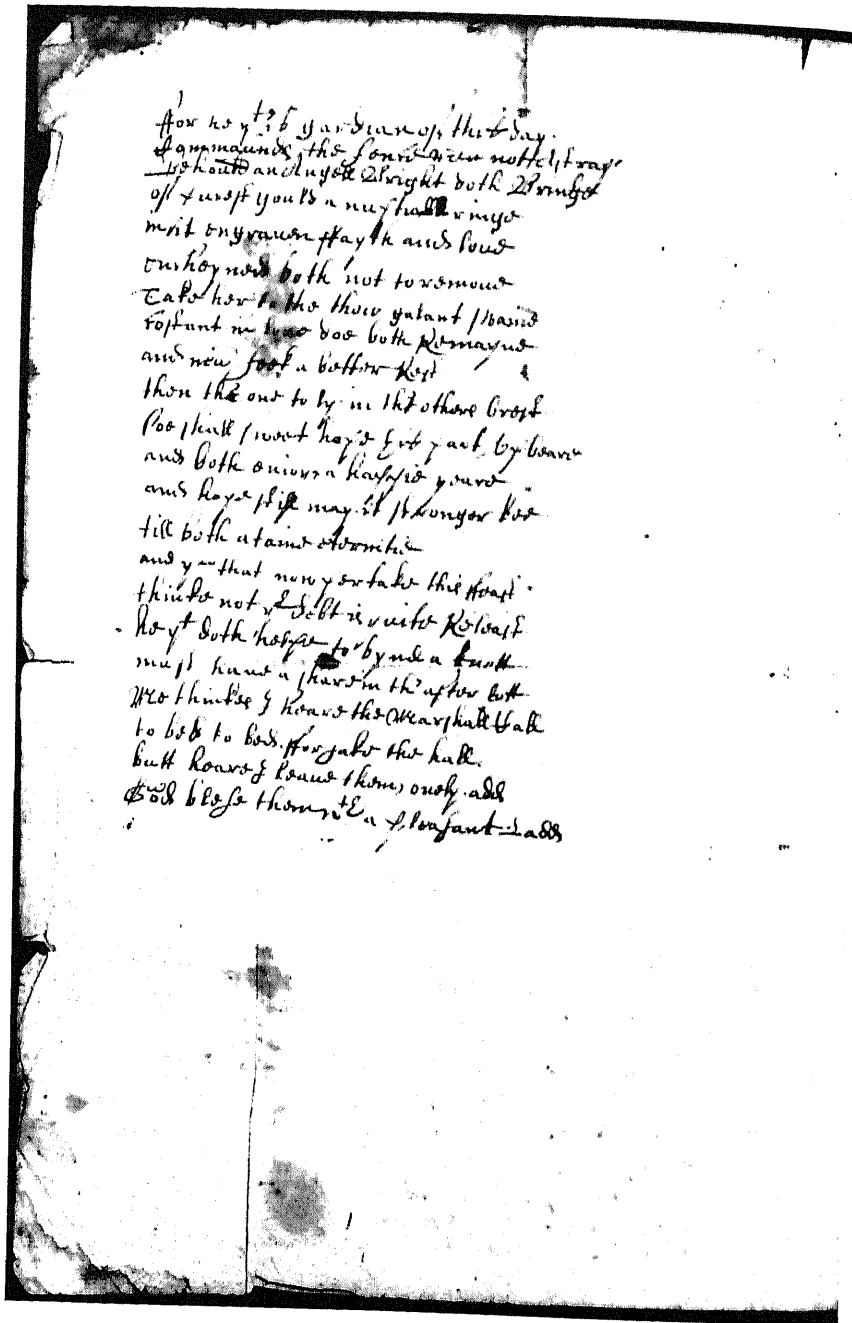 ffor he yt is gardian of this day
Commaunds the sences wee nott estraye
Behould an Angell Bright doth Bringe
off purest gould a nuptiall ringe
in it engraven ffayth and love
both not to remove
Take her to the thow galant swaine
Costant in love doe both Remayne
and now seek a better Rest
then the one to ly in the others brest
soe shall sweet hope his part upbeare
and both enioye a happie yeare
and hope still may it stronger bee
till both ataine eternitie
and you that now pertake this ffeast
thinke not ye debt is quite Releast
he yt doth helpe to bynde a knott
must have a share in th' after lott
Me thinkes I heare the Marshall Call
to bed to bed fforsake the hall
butt heare I leave them, onely add
God blese them wth a pleasant Ladd